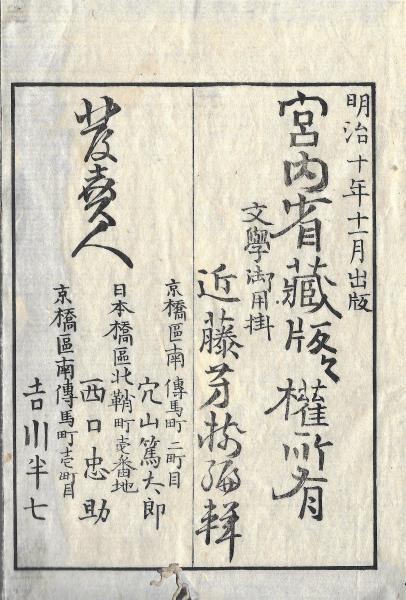 明治十年十一月出版
宮内省藏版々權所有
文學御用掛
近藤芳樹編輯
發賣人
京橋區南傳馬町二町目
穴山篤太郎
日本橋區北鞘町壱番地
西口忠助
京橋區南傳馬町壱町目
吉川半七